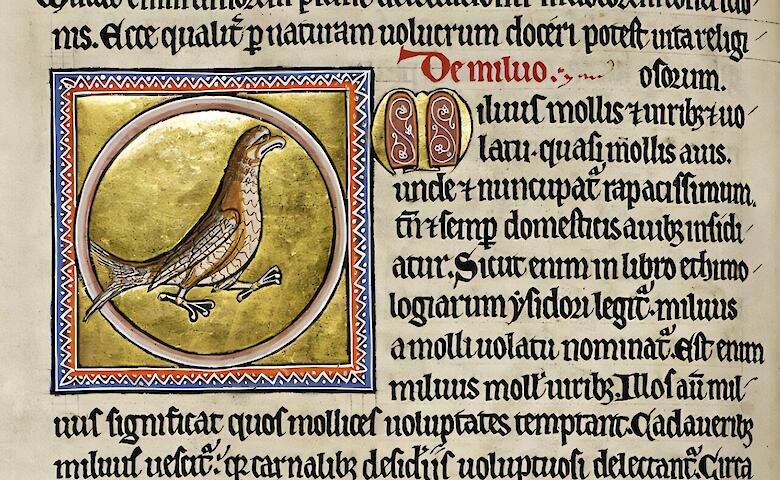 nis. Ecce qualit̾ ꝑ naturam uolucrum doceri potest uita religi
osorum.
De miluo.
Miluus mollis ⁊ uiribꝫ ⁊ uo
latu. quasi mollis auis.
unde ⁊ nuncupat᷑ rapacissimum.
tn̄ ⁊ semꝑ domesticis auibꝫ insidi
atur. Sicut enim in libro ethimo
logiarum ysidori legit᷑. miluus
a molli uolatu nominat᷑. Est enim
miluus moll' uiribꝫ. Illos aū mil
uus significat quos mollices uoluptates temptant. Cadaueribꝫ
miluus uescit᷑. qꝛ carnalibꝫ desidijs uoluptuosi delectant᷑. Circa